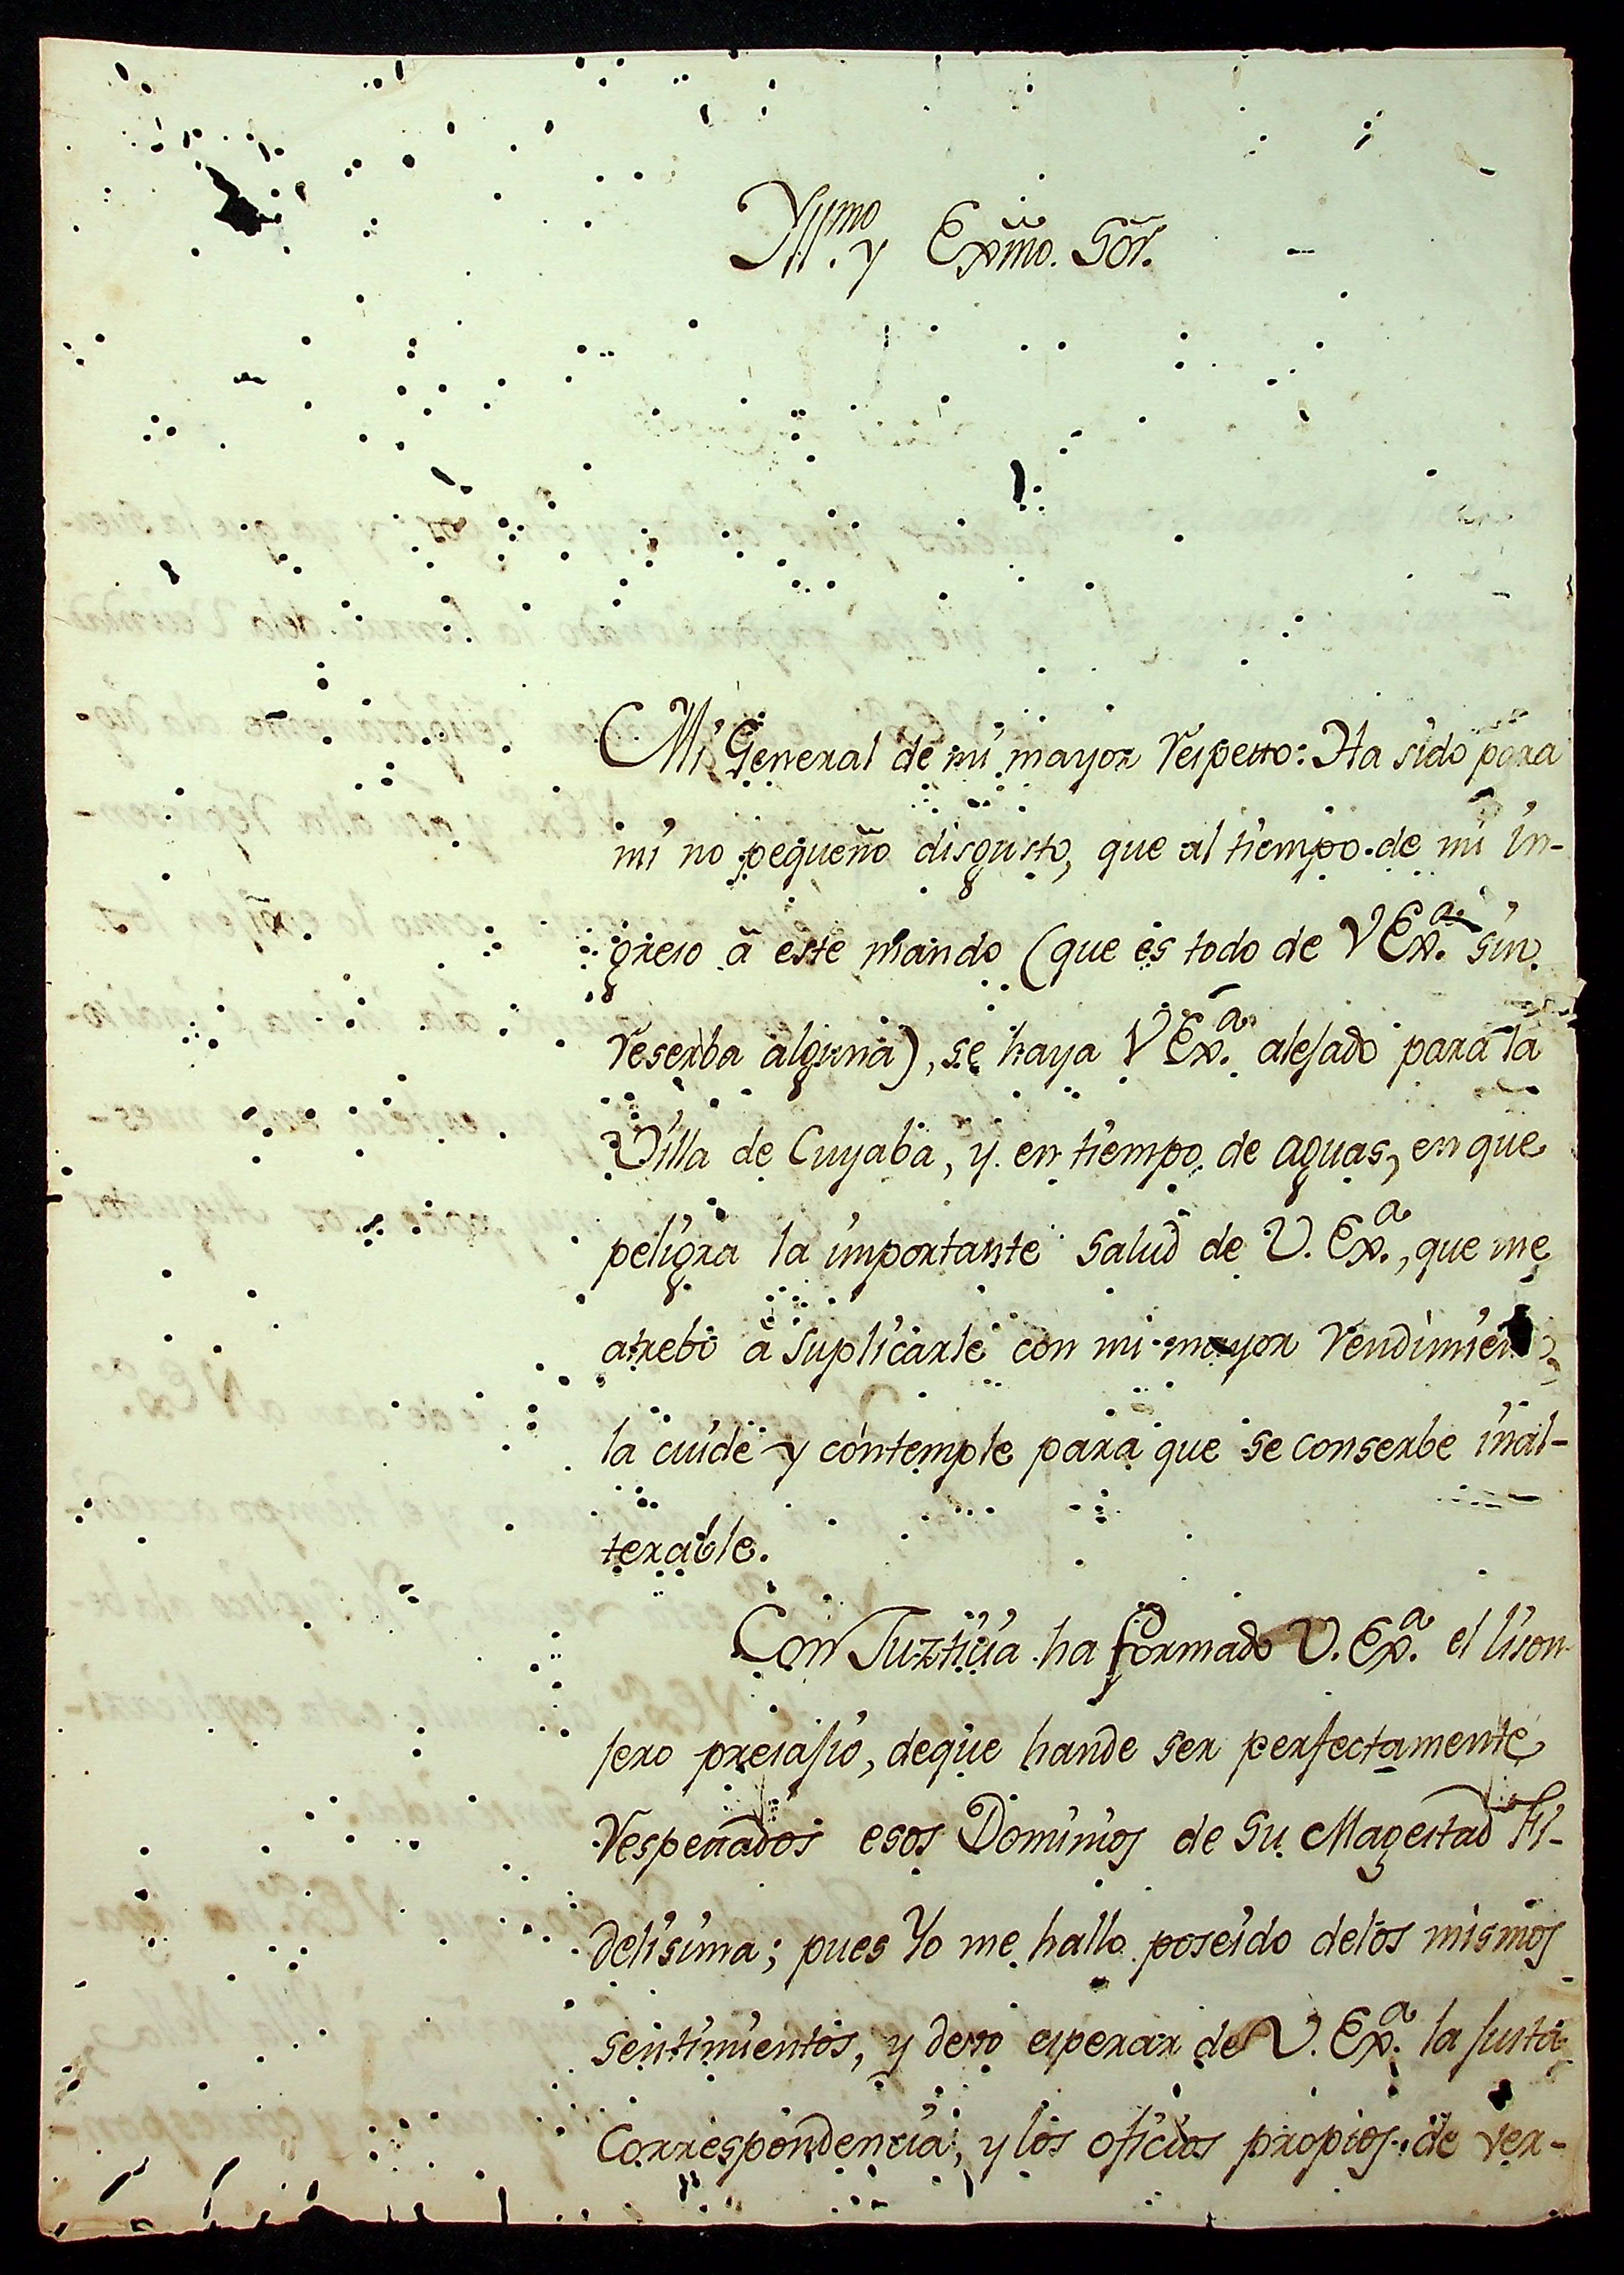 Yll.mo y Exmo. Sõr.
Mi General de mi mayor respetto: Ha sido para
mi no pequeño disgusto, que al tiempo de mi in-
greso â este mando (que es todo de VEx.a sin
reserba alguna), se haya VEx.a alejado para la
Villa de Cuyaba, y en tiempo de aguas, en que
peligra la importante salud de V. Ex.a, que me
atrebo â suplicarle con mi mayor
la cuide y contemple para que se conserbe inal-
terable.
Con Juzticia ha formado V. Ex.a el lison-
jero presajio, deque hande ser perfectamente
respettados esos Dominios de Su Magestad Fi-
delisima; pues Yo me hallo poseido delos mismos
sentimientos, y devo esperar de V. Ex.a la justa
Correspondencia, y los oficios propios de ver-